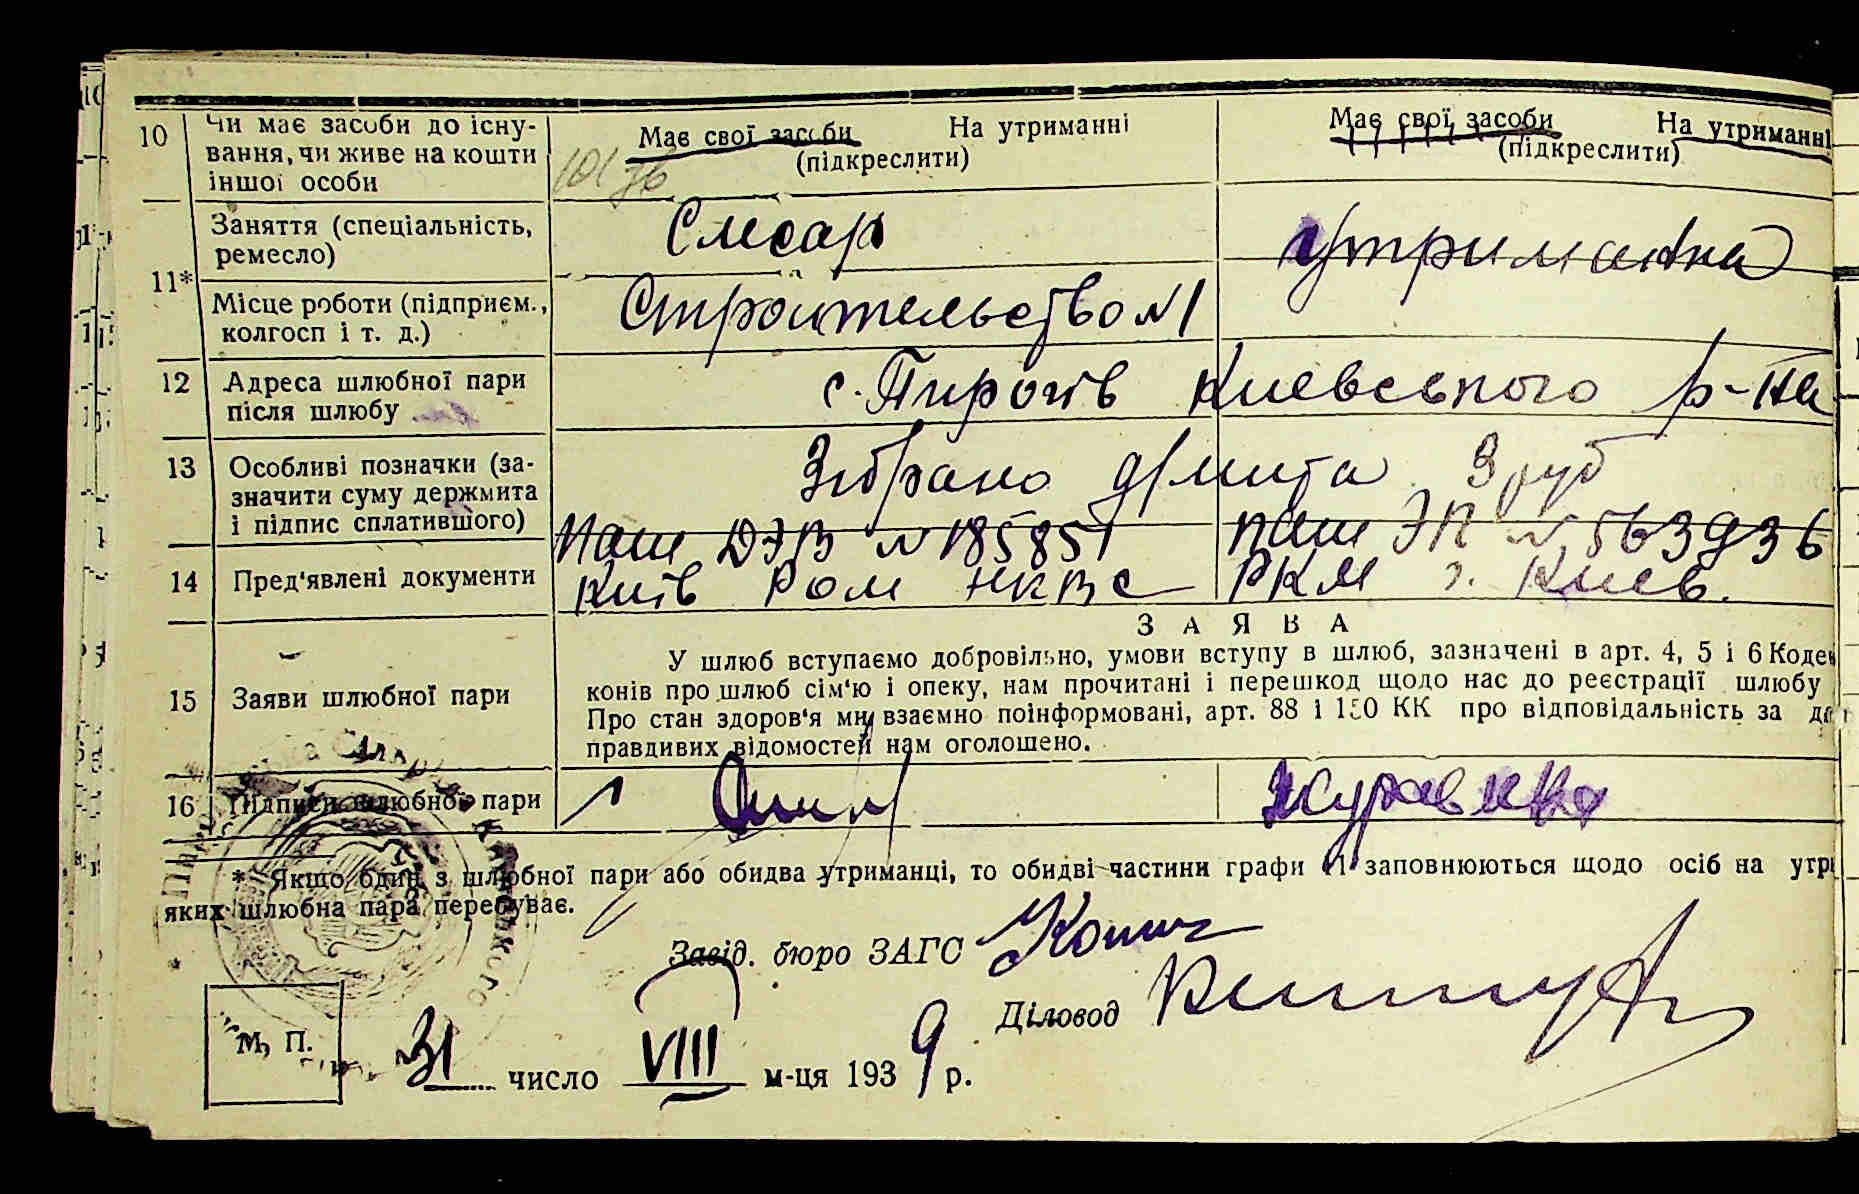 10 Чи має засоби до існу- Має свої засоби На утриманні Має свої засоби На утриманні
вання, чи живе на кошти (підкреслити) (підкреслити)
іншої особи 101/76
Заняття (спеціальність, Слесар Утриманка
ремесло)
11*
Місце роботи (підприєм., Строительство №1
колгосп і т. д.)
12 Адреса шлюбної пари с. Пирогів Киевського р-на
після шлюбу
13 Особливі позначки (за- Зібрано д/мита 3 руб
значити суму держмита
і підпис сплатившого) Паш ДЭВ № 185851 Паш ЭП № 563936
14 Пред'явлені документи Київ РОМ НКВС РКМ г. Киев.
ЗАЯВА
У шлюб вступаємо добровільно, умови вступу в шлюб, зазначені в арт. 4, 5 і 6 Коде
15 Заяви шлюбної пари конів про шлюб сім'ю і опеку, нам прочитані і перешкод щодо нас до реєстрації шлюбу
Про стан здоров'я ми взаємно поінформовані, арт. 88 і 150 КК про відповідальність за
правдивих відомостей нам оголошено.
16 Підписи шлюбної пари Журавква
* Якщо один з шлюбної пари або обидва утриманці, то обидві частини графи 11 заповнюються щодо осіб на утри
яких шлюбна пара перебуває.
Завід. бюро ЗАГС
Діловод
М. П.
31 число VIII м-ця 1939 р.